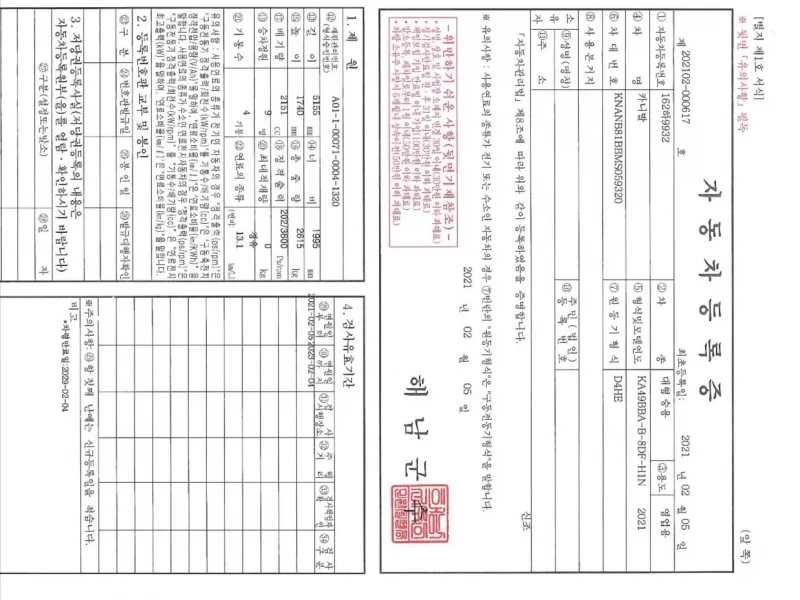 [별지 제1호 서식]
※ 뒷면 「유의사항」 필독
(앞 쪽)
자 동 차 등 록 증
제 202102-000617 호
최초등록일: 2021 년 02 월 05 일
① 자동차등록번호 162하9932 ② 차 종 대형 승용 ③ 용도 영업용
④ 차 명 카니발 ⑤ 형식및모델연도 KA49BBA-B-8DF-H1N 2021
⑥ 차 대 번 호 KNANB81BBMS059320 ⑦ 원 동 기 형 식 D4HE
⑧ 사 용 본 거 지
소 유 자 ⑨ 성명(명칭) ⑩ 주 민 (법 인) 등 록 번 호
⑪ 주 소
「자동차관리법」 제8조에 따라 위와 같이 등록하였음을 증명합니다.
신조
※ 유의사항 : 사용연료의 종류가 전기 또는 수소인 자동차의 경우 ⑦번란의 "원동기형식"은 "구동전동기형식"을 말합니다.
- 위반하기 쉬운 사항(뒷면기재참조) -
2021 년 02 월 05 일
해 남 군 수
1. 제 원
⑫ 제원관리번호 (형식승인번호) A01-1-00071-0004-1320
⑬ 길 이 5155 mm ⑭ 너 비 1995 mm
⑮ 높 이 1740 mm ⑯ 총 중 량 2615 kg
⑰ 배 기 량 2151 cc ⑱ 정 격 출 력 202/3800 Ps/rpm
⑲ 승차정원 9 명 ⑳ 최대적재량 0 kg
㉑ 기 통 수 4 기통 ㉒ 연료의 종류 경유 (연비: 13.1 km/L)
2. 등록번호판 교부 및 봉인
㉓ 구 분 ㉔ 번호판발급일 ㉕ 봉 인 일 ㉖ 발급대행자확인
3. 저당권등록사실(저당권등록의 내용은
자동차등록원부(을)를 열람ㆍ확인하시기 바랍니다)
㉗ 구분(설정또는말소) ㉘ 일 자
4. 검사유효기간
㉙ 연월일 부터 ㉚ 연월일 까지 ㉛ 검 사 시행장소 ㉜ 주 행 거 리 ㉝ 검사책임자 확 인 ㉞ 검 사 구 분
2021-02-05 2023-02-04
※주의사항: ㉙ 항 첫째 난에는 신규등록일을 적습니다.
비고
*차령만료일:2029-02-04